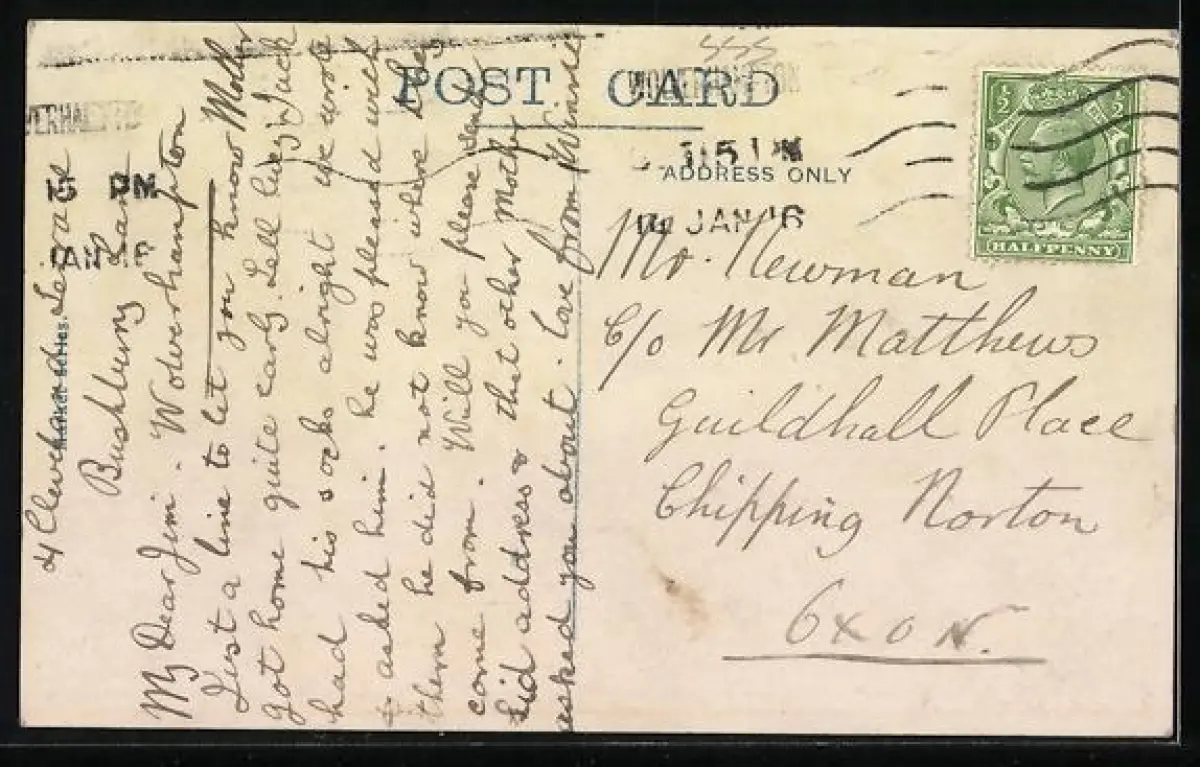 POST CARD
ADDRESS ONLY
WOLVERHAMPTON
15 PM
JAN 16
HALFPENNY
Mr. Newman
C/o Mr. Matthews
Guildhall Place
Chipping Norton
Oxon.
4 Cleveland
Bushbury Lane
Wolverhampton
My Dear Jim.
Just a line to let you know Mother
got home quite early. Tell Lucy Jack
had his socks alright we wrote
& asked him. he was pleased with
them he did not know where they
come from. Will you please send
Sid address & that other Mother
asked you about. Love from Winnie